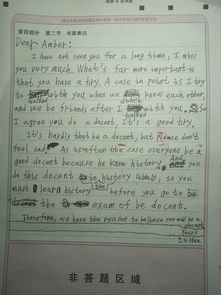 第四部分 第二节 书面表达
Dear Amber:
I have not seen you for a long time, I miss
you very much. What's far more important is
that you have a try. A case in point is I try
to talked with you we know each other,
and we be friends after I talked with you, So
I agree you do a docent. It's a good try.
It's hardly that be a docent, but Please don't
feel sad. As is often the case everyone be a
good docent because he know history. And you
do this docent is history, so you
must learn history before you go to
the exam of be docent.
Therefore, we have the reason to believe you will be a
docent
Yours
Li Hua
非答题区域